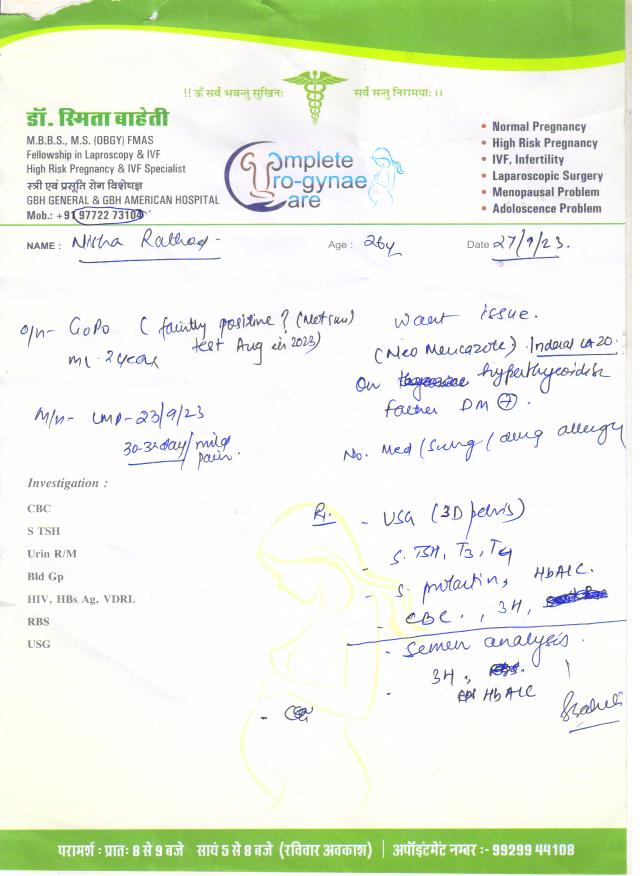 !! ॐ सर्वे भवन्तु सुखिनः सर्वे सन्तु निरामयाः ।।
डॉ. स्मिता बाहेती
M.B.B.S., M.S. (OBGY) FMAS
Fellowship in Laproscopy & IVF
High Risk Pregnancy & IVF Specialist
स्त्री एवं प्रसूति रोग विशेषज्ञ
GBH GENERAL & GBH AMERICAN HOSPITAL
Mob.: +91 97722 73104
Complete
Uro-gynae
Care
• Normal Pregnancy
• High Risk Pregnancy
• IVF, Infertility
• Laparoscopic Surgery
• Menopausal Problem
• Adoloscence Problem
NAME : Nisha Rathod Age : 26y Date 27/9/23.
O/H- G0P0 ( faintly positive ? (Not sure)
test Aug in 2023)
ML 2 year
Want issue.
(Neo Mercazole) Inderal LA 20.
On hyperthyroidism
father DM +.
M/H- LMP-23/9/23
30-32day/mild
pain.
No. Med/Surg/drug allergy
Investigation :
CBC
S TSH
Urin R/M
Bld Gp
HIV, HBs Ag, VDRL
RBS
USG
Rx. - USG (3D pelvis)
- S. TSH, T3, T4
- S. prolactin, HbA1C.
- CBC., 3H,
- Semen analysis.
- 3H,
HbA1C
परामर्श : प्रातः 8 से 9 बजे सायं 5 से 8 बजे (रविवार अवकाश) | अपॉइंटमेंट नम्बर :- 99299 44108